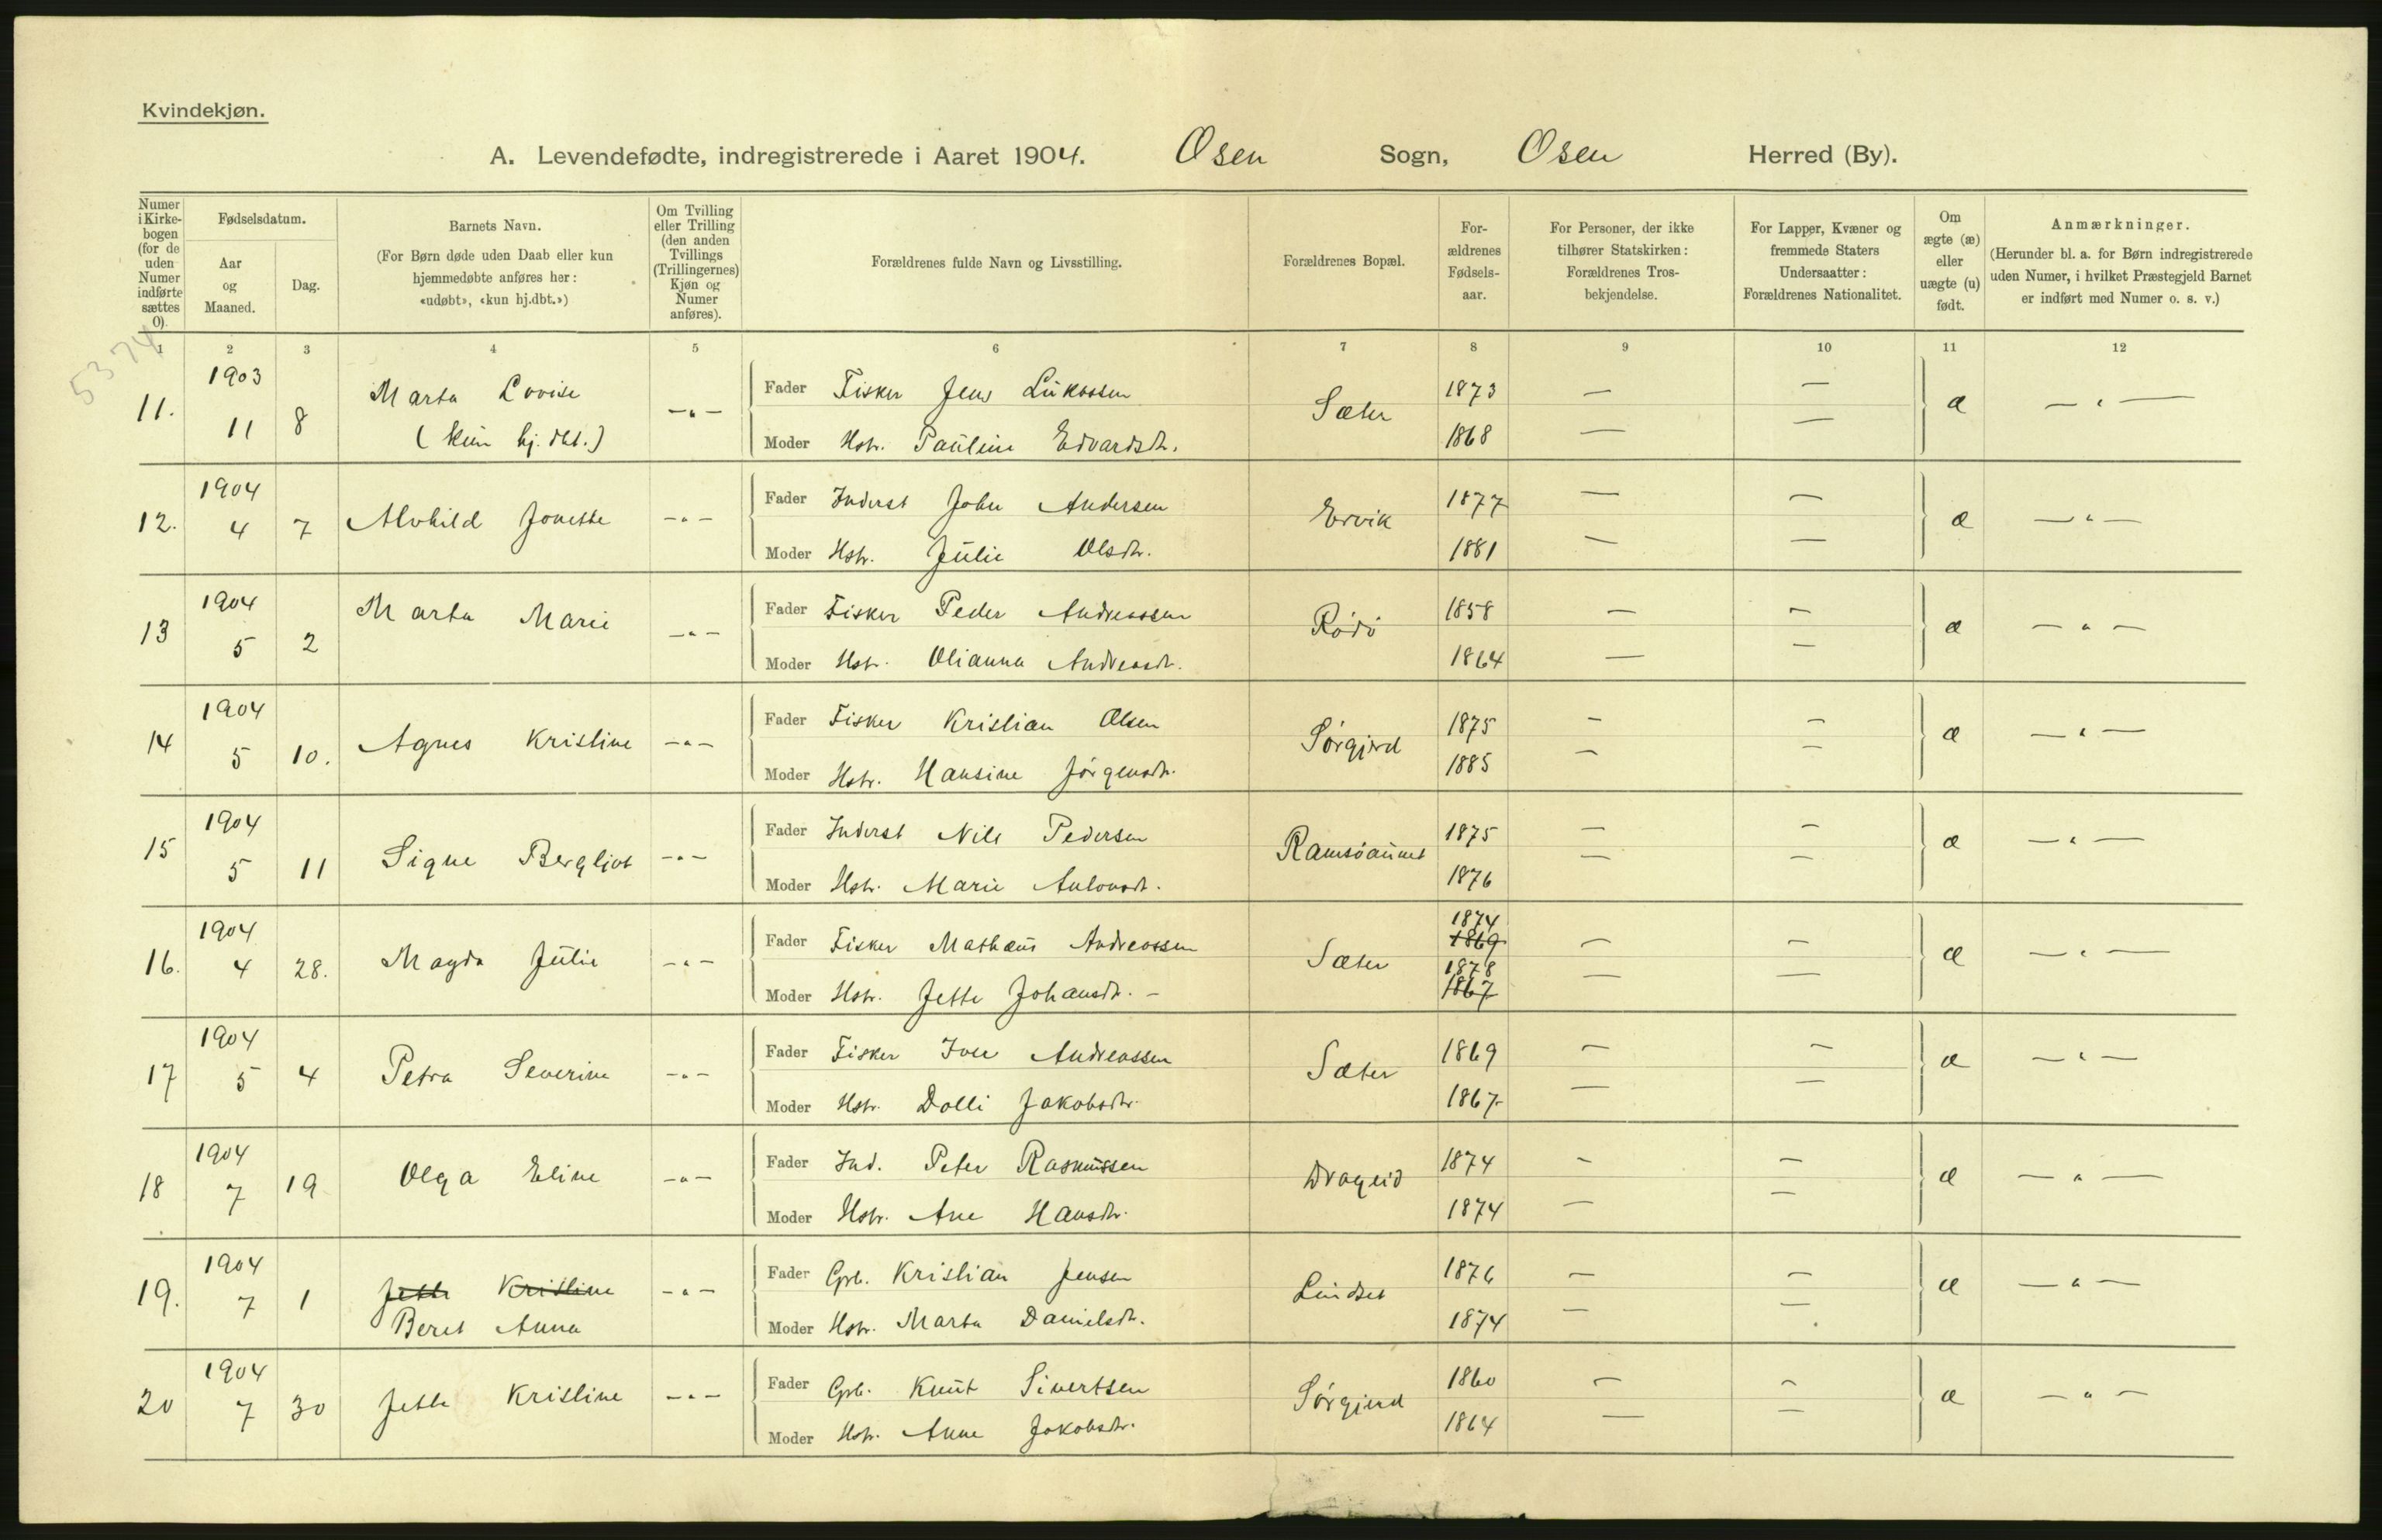 Kvindekjøn.
A. Levendefødte, indregistrerede i Aaret 1904. Osen Sogn, Osen Herred (By).
Numer i Kirkebogen (for de uden Numer indførte sættes 0). Fødselsdatum. Aar og Maaned. Dag. Barnets Navn. (For Børn døde uden Daab eller kun hjemmedøbte anføres her: «udøbt», «kun hj.dbt.») Om Tvilling eller Trilling (den anden Tvillings (Trillingernes) Kjøn og Numer anføres). Forældrenes fulde Navn og Livsstilling. Forældrenes Bopæl. Forældrenes Fødselsaar. For Personer, der ikke tilhører Statskirken: Forældrenes Trosbekjendelse. For Lapper, Kvæner og fremmede Staters Undersaatter: Forældrenes Nationalitet. Om ægte (æ) eller uægte (u) født. Anmærkninger. (Herunder bl. a. for Børn indregistrerede uden Numer, i hvilket Præstegjeld Barnet er indført med Numer o. s. v.)
1 2 3 4 5 6 7 8 9 10 11 12
5374
11. 1903 11 8 Marta Lovise (kun hj. dbt.) — „ — Fader Fisker Jens Lukassen Sæter 1873 — — æ — „ —
Moder Hstr. Pauline Edvardsdtr. 1868 — —
12. 1904 4 7 Alvhild Jonette — „ — Fader Inderst Johan Andersen Ervik 1877 — — æ — „ —
Moder Hstr. Julie Olsdtr. 1881 — —
13 1904 5 2 Marta Marie — „ — Fader Fisker Peder Andreassen Rødø 1858 — — æ — „ —
Moder Hstr. Olianna Andreasdtr. 1864 — —
14 1904 5 10. Agnes Kristine — „ — Fader Fisker Kristian Olsen Sørgjerd 1875 — — æ — „ —
Moder Hstr. Hansine Jørgensdtr. 1885 — —
15 1904 5 11 Signe Bergljot — „ — Fader Inderst Nils Pedersen Ramsøaunet 1875 — — æ — „ —
Moder Hstr. Marie Antonsdtr. 1876 — —
16. 1904 4 28. Magda Julie — „ — Fader Fisker Mathæus Andreassen Sæter 1874 1869 — — æ — „ —
Moder Hstr. Jette Johansdtr. — 1878 1867 — —
17 1904 5 4 Petra Severine — „ — Fader Fisker Iver Andreassen Sæter 1869 — — æ — „ —
Moder Hstr. Dolli Jakobsdtr. 1867 — —
18 1904 7 19 Olga Eline — „ — Fader Ind. Peter Rasmussen Drageid 1874 — — æ — „ —
Moder Hstr. Ane Hansdtr. 1874 — —
19. 1904 7 1 Jette Kristine Beret Anna — „ — Fader Gbr. Kristian Jensen Lindset 1876 — — æ — „ —
Moder Hstr. Marta Danielsdtr. 1874 — —
20 1904 7 30 Jette Kristine — „ — Fader Gbr. Knut Sivertsen Sørgjerd 1860 — — æ — „ —
Moder Hstr. Anne Jakobsdtr. 1864 — —